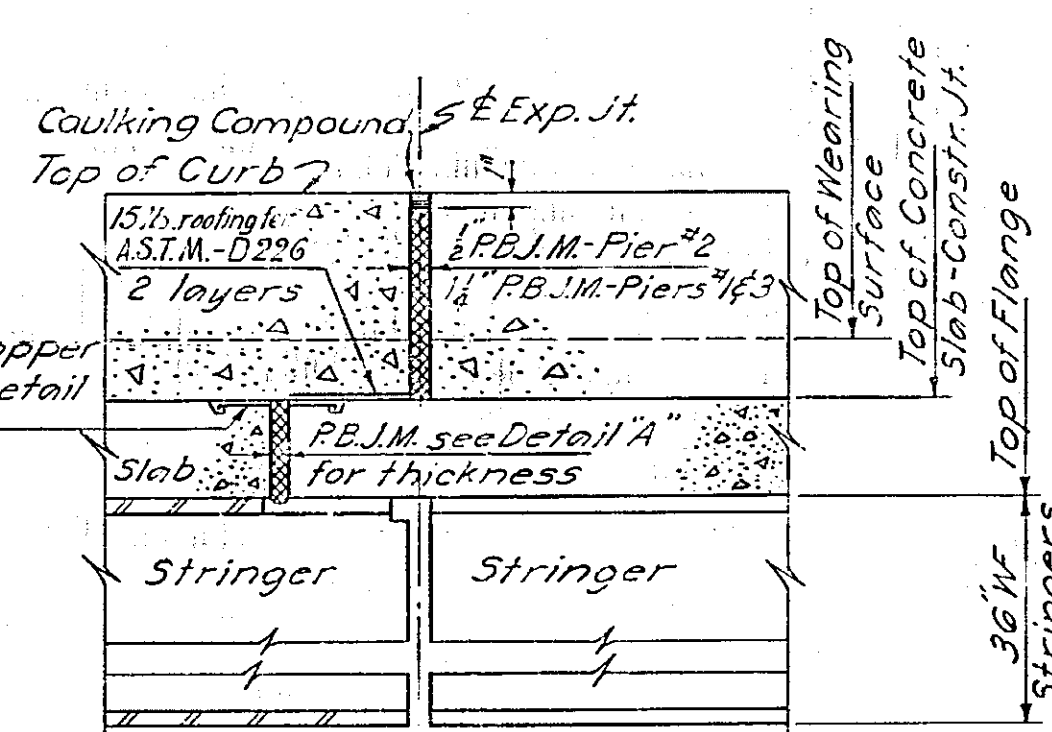 Caulking Compound
℄ Exp. Jt.
Top of Curb
1"
15 lb. roofing fe
A.S.T.M.-D226
2 layers
1/2" P.B.J.M.-Pier #2
1 1/4" P.B.J.M.-Piers #1 & 3
opper
etail
P.B.J.M. see Detail "A"
for thickness
Slab
Stringer
Stringer
Top of Wearing
Surface
Top of Concrete
Slab-Constr. Jt.
Top of Flange
36" WF
Stringers